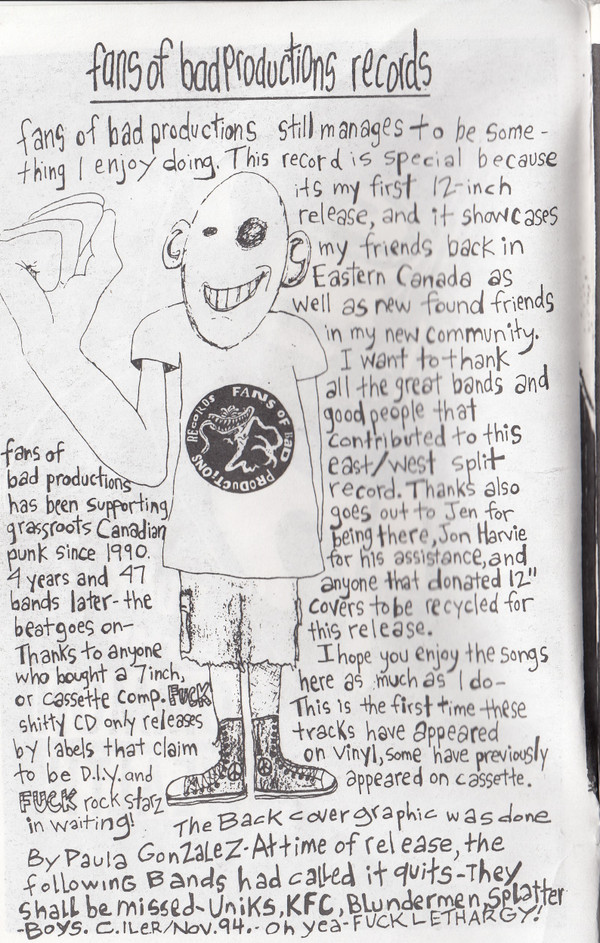 fans of bad productions records
fans of bad productions still manages to be some-
thing I enjoy doing. This record is special because
its my first 12-inch
release, and it showcases
my friends back in
Eastern Canada as
well as new found friends
in my new community.
I want to thank
all the great bands and
good people that
contributed to this
east/west split
record. Thanks also
goes out to Jen for
being there, Jon Harvie
for his assistance, and
anyone that donated 12"
covers to be recycled for
this release.
I hope you enjoy the songs
here as much as I do-
This is the first time these
tracks have appeared
on vinyl, some have previously
appeared on cassette.
FANS OF BAD PRODUCTIONS RECORDS
fans of
bad productions
has been supporting
grassroots Canadian
punk since 1990.
4 years and 47
bands later- the
beat goes on-
Thanks to anyone
who bought a 7inch,
or cassette comp. FUCK
shitty CD only releases
by labels that claim
to be D.I.Y. and
FUCK rock starz
in waiting!
The Back cover graphic was done
By Paula GonZaleZ-At time of release, the
following Bands had called it quits-They
shall be missed-Uniks, KFC, Blundermen, Splatter
-Boys. C.ILeR/Nov. 94.- oh yea-FUCK LETHARGY!